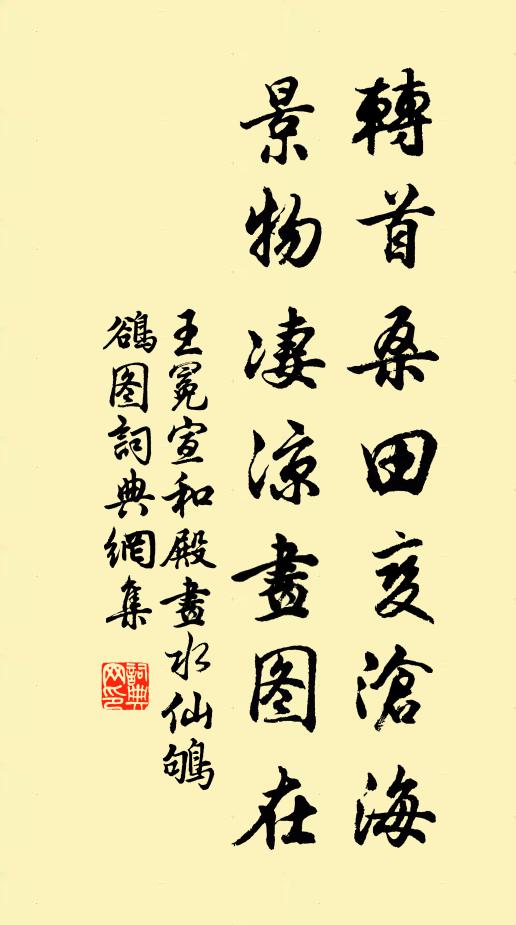 轉首桑田变滄海
景物凄凉畫图在
王冕宣和殿畫水仙鴝
鵒图詞典網集
詞典
网印